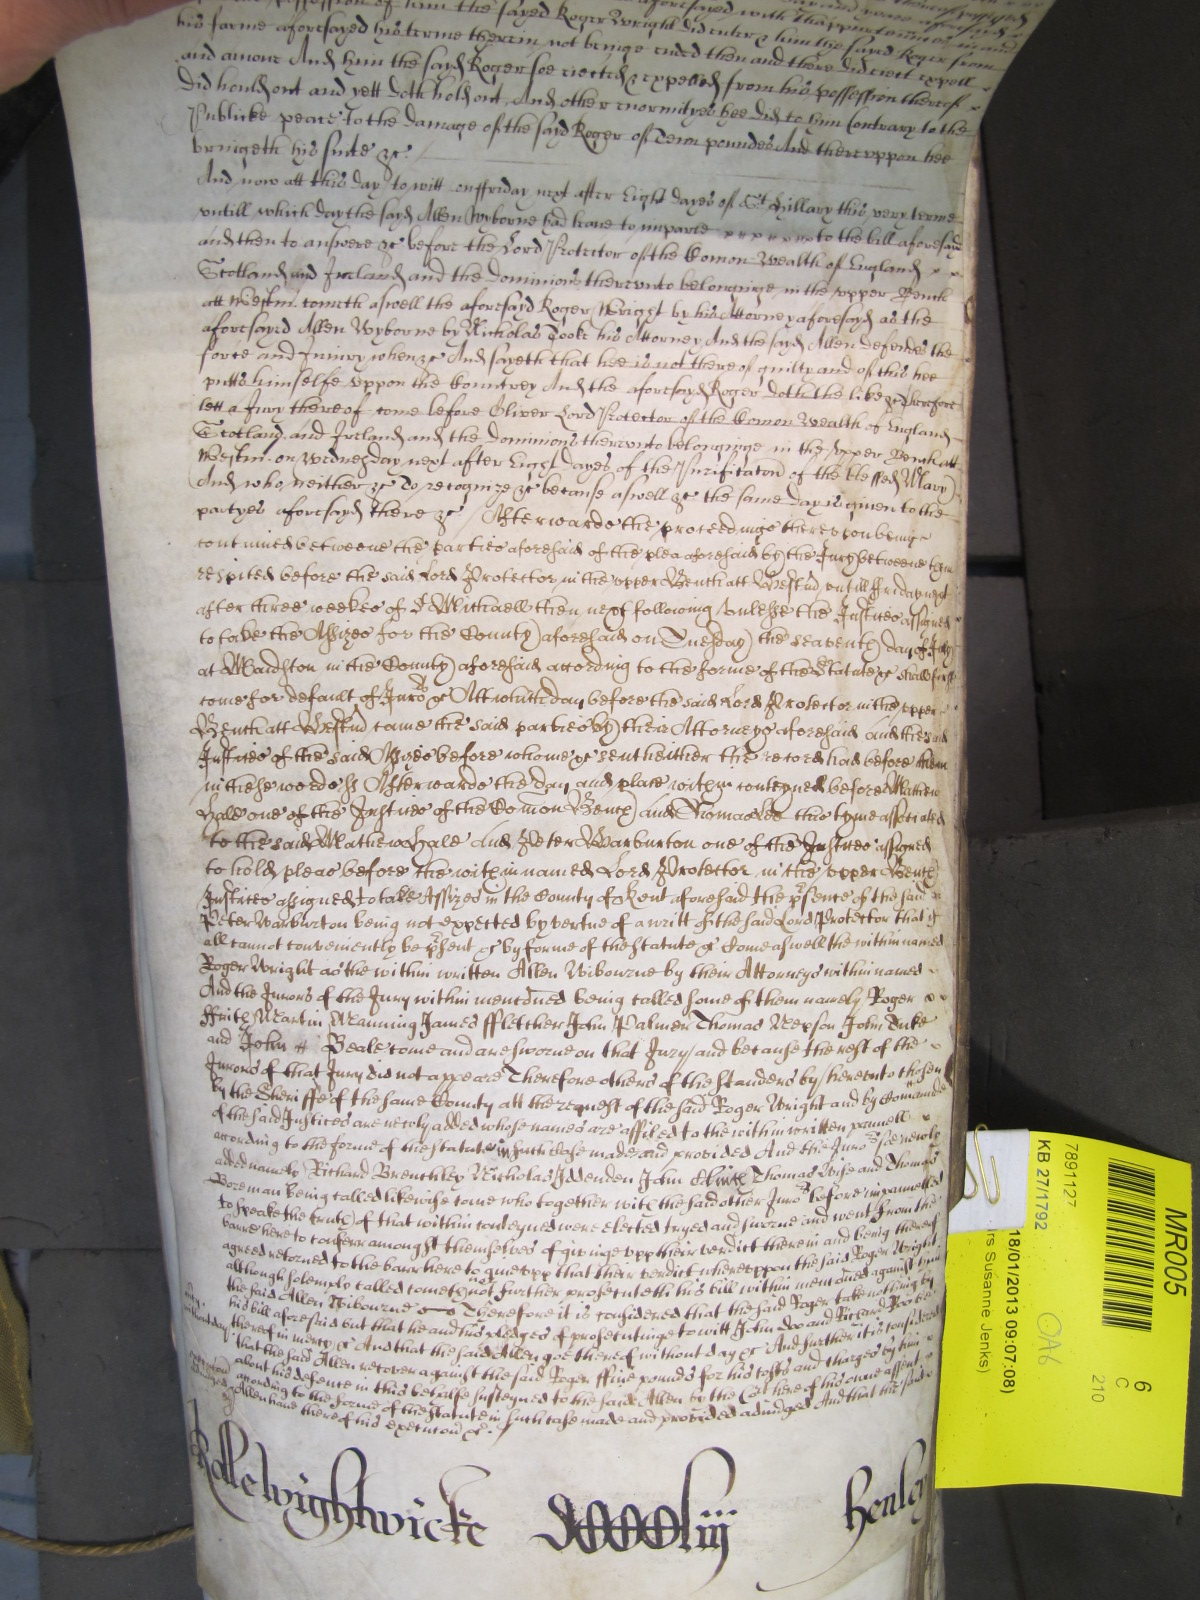 possession of him the sayed Roger Wright did enter & him the sayd Roger from
his farme aforesayed his terme therein not beinge ended then and there did eiect expell
and amove And him the sayd Roger soe eiected & expelled from his possession thereof
did hould out and yett doth hold out And other enormityes hee did to him Contrary to the
Publicke peace to the damage of the said Roger of Tenn poundes And thereuppon hee
bringeth his suite &c
And now att this day to witt on ffriday next after Eight dayes of St Hillary this very terme
untill which day the sayd Allen Wyborne had leave to imparle to the bill aforesayd
and then to answere &c before the Lord Protector of the Comon Wealth of England
Scotland and Ireland and the dominions thereunto belonginge in the upper Bench
att Westm. cometh aswell the aforesayd Roger Wright by his Attorney aforesayd as the
aforesayed Allen Wyborne by Nicholas Tooke his Attorney And the sayd Allen defendes the
force and Iniury when &c And sayeth that hee is not thereof guilty and of this hee
putts himselfe uppon the Countrey And the aforesayd Roger doth the like &c Therefore
lett a Jury thereof come before Oliver Lord Protector of the Comon Wealth of England
Scotland and Ireland and the dominions thereunto belonginge in the upper Bench att
Westm. on Wednesday next after Eight dayes of the Purificaton of the blessed Mary
And who neither &c To recognize &c because aswell &c the same day is given to the
partyes aforesayd there &c / Afterwards the proceedings thereupon being
continued betweene the parties aforesaid of the plea aforesaid by the Jury betweene them
respited before the said Lord Protector in the upper Bench att Westm untill ffriday next
after three weekes of St Michaell then next following unlesse the Justices assigned
to take the Assizes for the County aforesaid on Tuesday the seaventh day of July
at Maidston in the County aforesaid according to the forme of the Statute &c shall first
come for default of Juro &c Att which day before the said Lord Protector in the upper
Bench att Westm came the said parties by their Attorneys aforesaid and the said
Justices of the said Assizes before whome &c sent hether the record had before them
in these wordes ss Afterwards the day and place within conteyned before Mathew
Hale one of the Justices of the Comon Bench and Thomas Lee this tyme associated
to the said Mathew Hale And Peter Warburton one of the Justices assigned
to hold pleas before the within named Lord Protector in the upper Bench
Justices assigned to take Assizes in the County of Kent aforesaid the psence of the said
Peter Warburton being not expected by vertue of a writt of the said Lord Protector that if
all cannot conveniently be psent &c by forme of the statute &c Come aswell the within named
Roger Wright as the within written Allen Wibourne by their Attorneys within named
And the Jurors of the Jury within mentoned being called some of them namely Roger
ffrith Martin Manning James ffletcher John Palmer Thomas Wepson John Duke
and John Beale come and are sworne on that Jury and because the rest of the
Jurors of that Jury did not appeare Therefore others of the standers by hereunto chosen
by the Sheriffe of the same County att the request of the said Roger Wright and by Comaund
of the said Justices are newly added whose names are affiled to the within written pannell
according to the forme of the statute in such Case made and provided And the Juro soe newly
added namely Richard Brenchley Nicholas Iddenden John Thomas Wise and Thomas
Boreman being called likewise come who together with the said other Juro before impannelled
to speake the truth of that within conteyned were elected tryed and sworne and went from the
barre here to conferr amongst themselves of givinge upp their verdict therein and being thereof
agreed retorned to the barr here to give upp that their verdict whereuppon the said Roger Wright
although solemply called cometh not further prosecuteth his bill within mentoned against him
the said Allen Wibourne Therefore it is considered that the said Roger take nothing by
his bill aforesaid but that he and his pledges of prosecutinge to witt John Doo and Richard Roo
thereof in mercy &c And that the said Allen goe thereof without day &c And further it is considered
that the said Allen recover against the said Roger ffive pounds for his costs and charges by him
about his defence in this behalfe susteyned to the said Allen by the Cort here of his owne assent
according to the forme of the statute in such case made and provided adiudged And that the said
Allen have thereof his execucon &c
Rolle Wightwicke
Henley
MR005
6
C
210
7891127
KB 27/1792
OA6
18/01/2013 09:07:08)
rs Susanne Jenks)